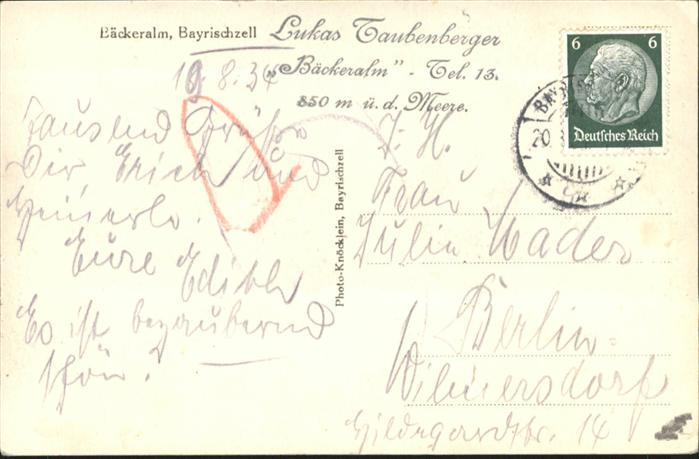 Bäckeralm, Bayrischzell
Lukas Taubenberger
„Bäckeralm" - Tel. 13.
850 m ü. d. Meere.
19.8.34
Tausend Grüße
Dir, Erich und
Heinerle.
Eure Edith
Es ist bezaubernd
schön!
Photo-Knöcklein, Bayrischzell
Frau
Julia Mader
Berlin-
Wilmersdorf
Hildegardstr. 14
6 6
Deutsches Reich
BAY
20.